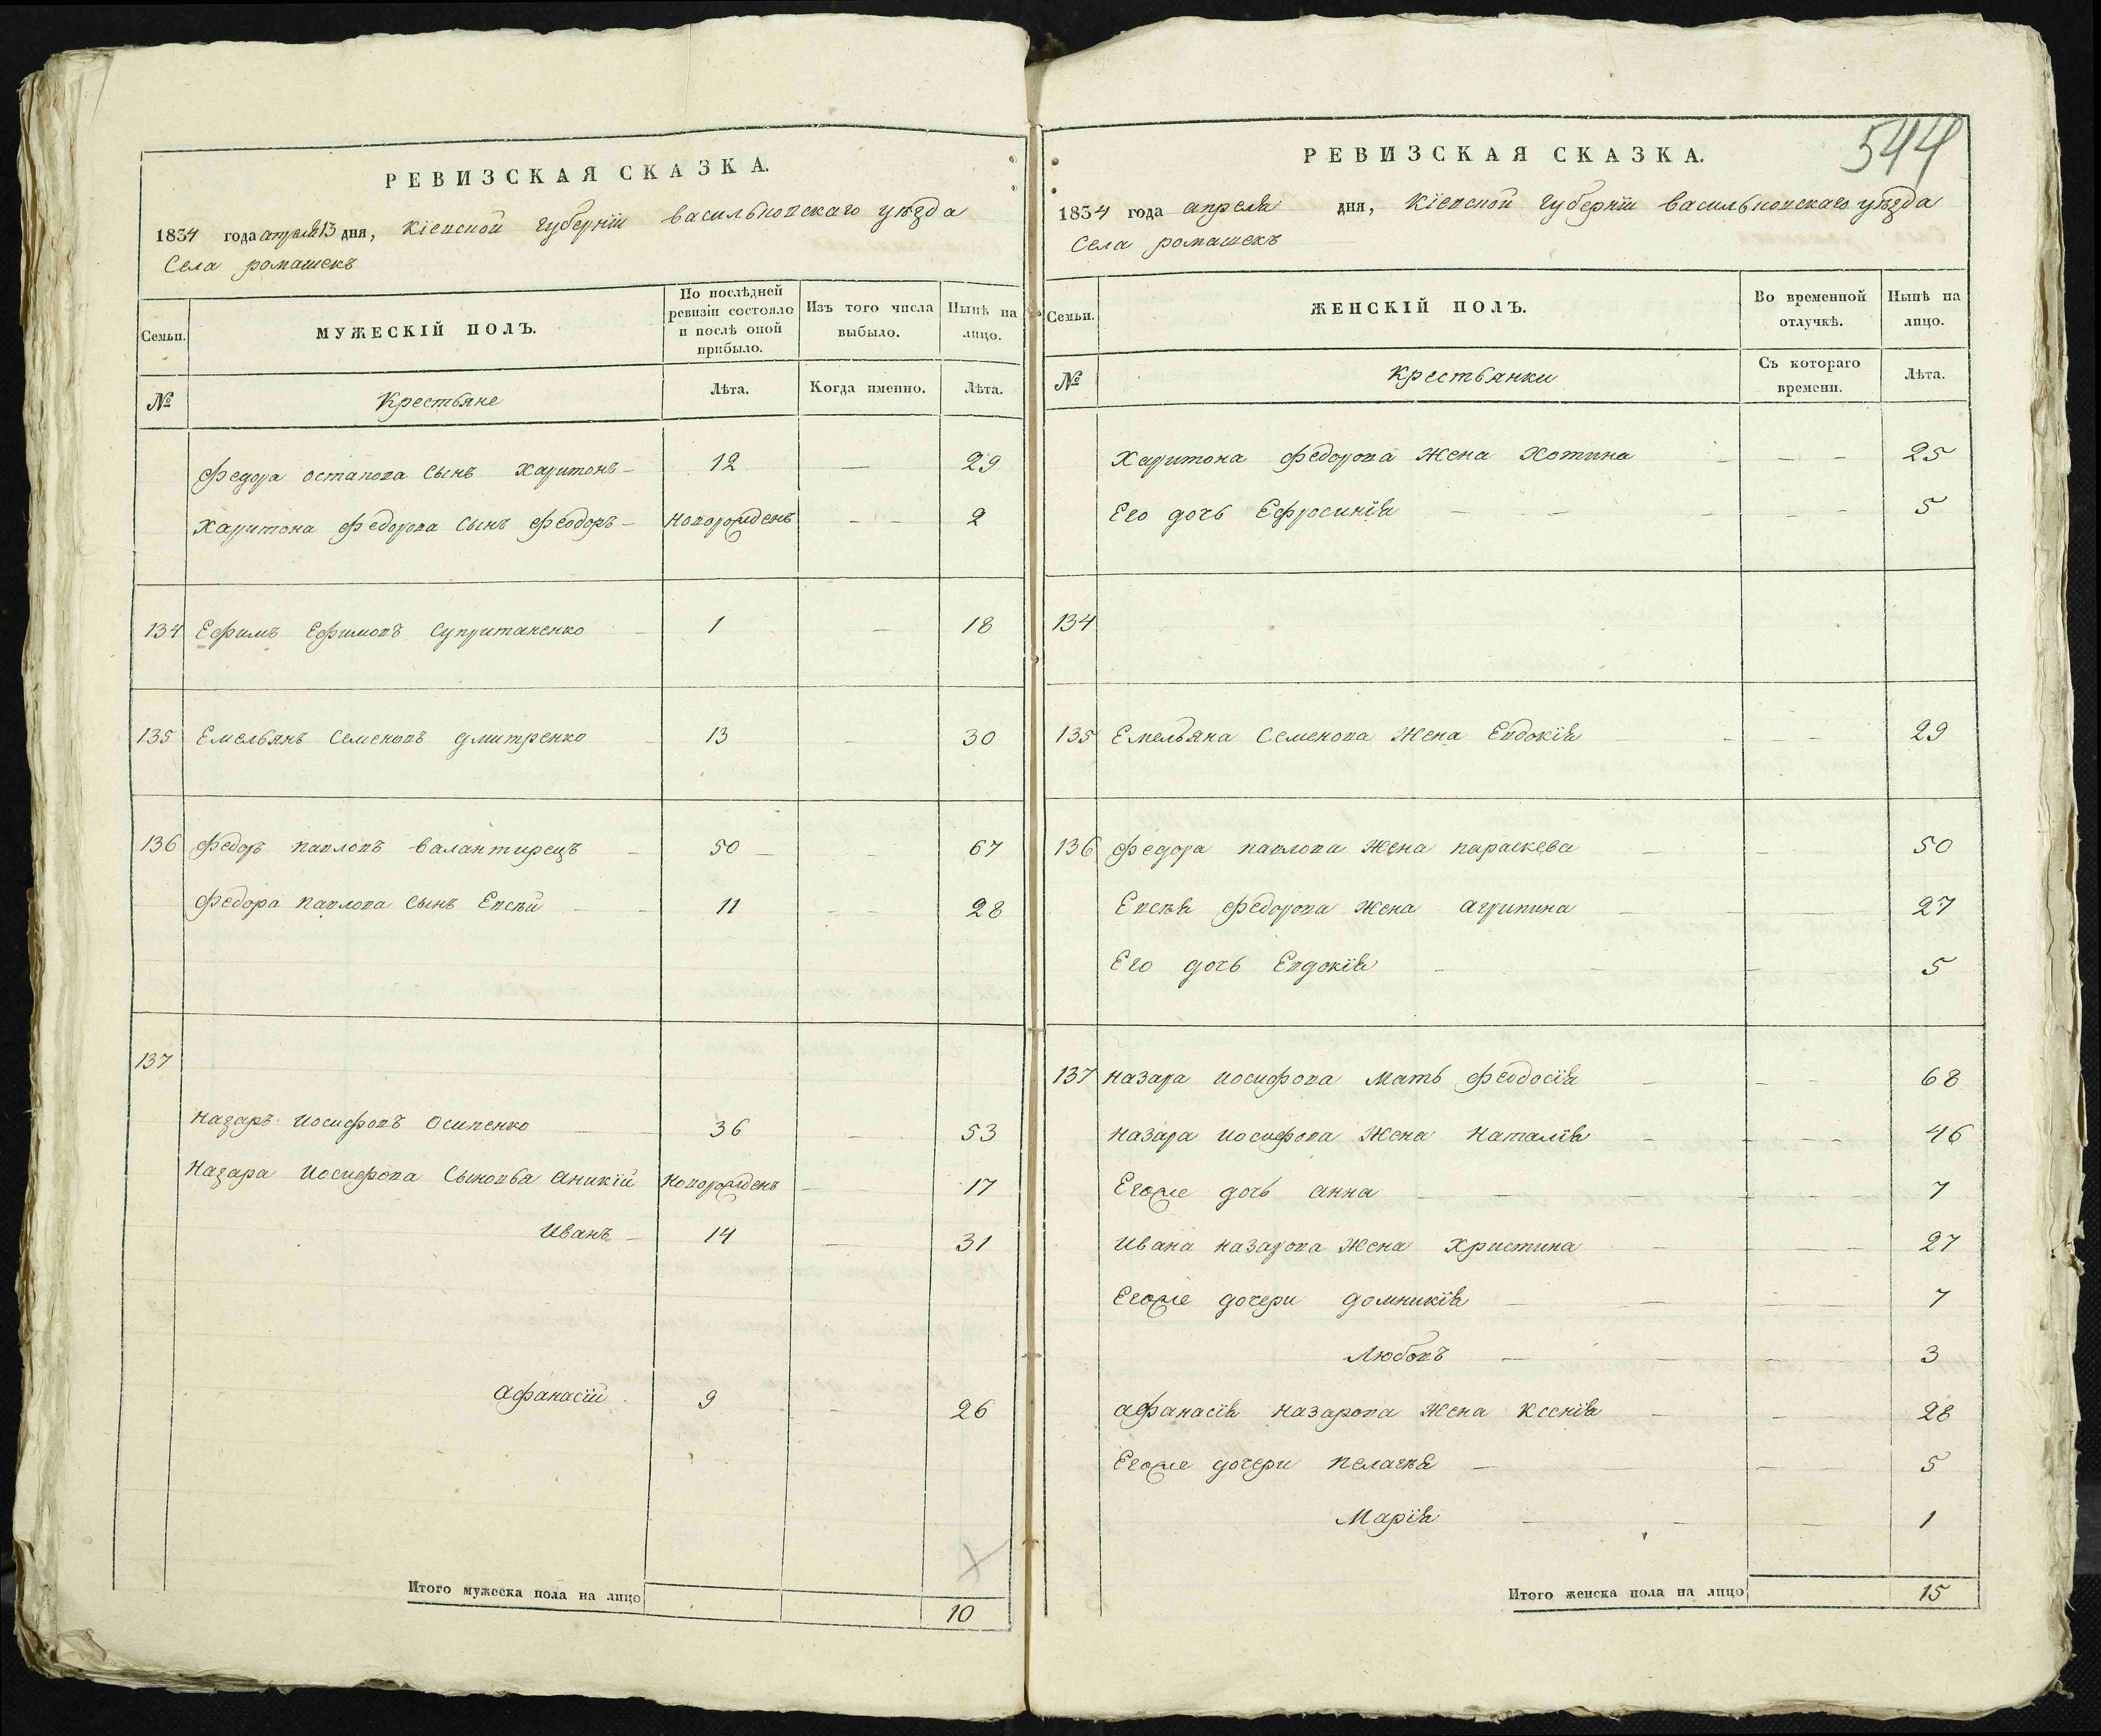 РЕВИЗСКАЯ СКАЗКА.
1834 года апреля 13 дня, Кіевской губерніи васильковскаго уѣзда
Села ромашекъ
Семьи.
МУЖЕСКІЙ ПОЛЪ.
По послѣдней ревизіи состояло и послѣ оной прибыло.
Изъ того числа выбыло.
Нынѣ на лицо.
№
Крестьяне
Лѣта.
Когда именно.
Лѣта.
Федора остапова сынъ Харитонъ — 12 — 29
Харитона Федорова сынъ Феодоръ — новорожденъ — — 2
134 Ефимъ Ефимовъ супританенко — 1 — 18
135 Емельянъ Семеновъ дмитренко — 13 — 30
136 Федоръ павловъ валантирецъ — 50 — — 67
Федора павлова сынъ Евсѣй — — 11 — — 28
137
Назаръ иосифовъ Осипенко — — 36 — 53
Назара Иосифова Сыновья аникій новорожденъ — — 17
Иванъ — 14 — 31
афанасій 9 — 26
Итого мужеска пола на лицо 10
544
РЕВИЗСКАЯ СКАЗКА.
1834 года апреля дня, Кіевской губерніи васильковскаго уѣзда
Села ромашекъ
Семьи.
ЖЕНСКІЙ ПОЛЪ.
Во временной отлучкѣ.
Нынѣ на лицо.
№
Крестьянки
Съ котораго времени.
Лѣта.
Харитона федорова жена Хотина — — — 25
Его дочь Ефросинія — — — — — 5
134
135 Емельяна Семенова жена Евдокія — — — 29
136 Федора павлова жена параскева — — 50
Евсѣя федорова жена агрипина — — — 27
Его дочь Евдокія — — — 5
137 Назара иосифова мать феодосія — — — 68
Назара иосифова жена Наталія — — — — 46
Егоже дочь анна — — — — — 7
Ивана назарова жена Христина — — — 27
Егоже дочери домникія — — — — 7
Любовъ — — — — 3
афанасія назарова жена Ксенія — — 28
Егоже дочери пелагѣя — — — 5
Марія — — — 1
Итого женска пола на лицо 15